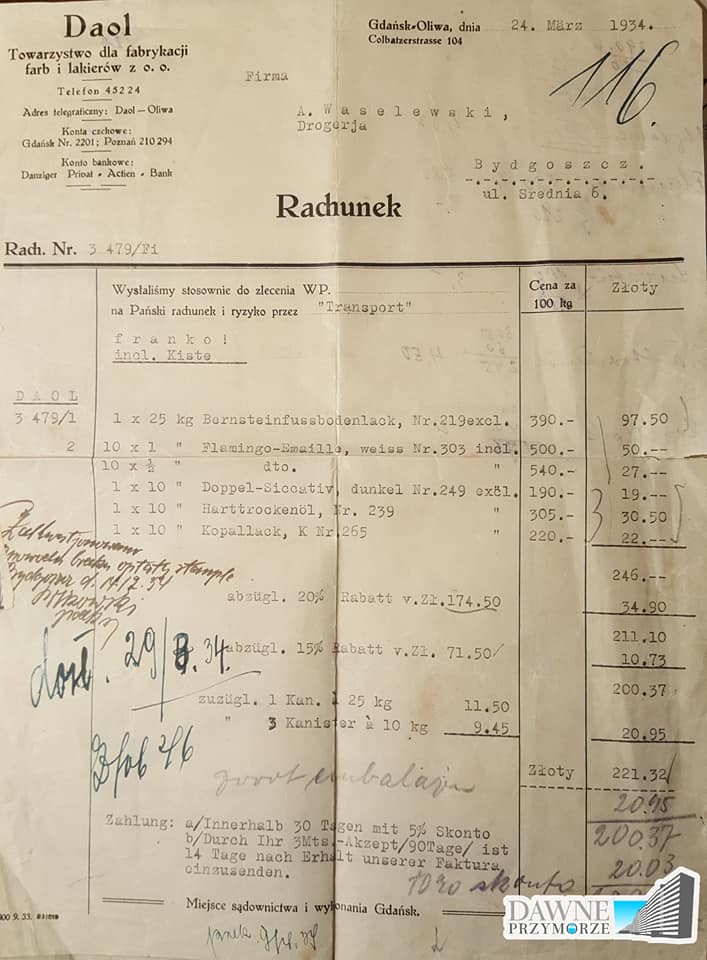 Daol
Towarzystwo dla fabrykacji
farb i lakierów z o. o.
Telefon 45224
Adres telegraficzny: Daol-Oliwa
Konta czekowe:
Gdańsk Nr. 2201; Poznań 210294
Konto bankowe:
Danziger Privat-Actien-Bank
Gdańsk-Oliwa, dnia 24. März 1934.
Colbatzerstrasse 104
116.
Firma
A. Waselewski,
Drogerja
Bydgoszcz.
ul. Srednia 6.
Rachunek
Rach. Nr. 3 479/Fi
Wysłaliśmy stosownie do zlecenia WP.
na Pański rachunek i ryzyko przez "Transport"
Cena za
100 kg
Złoty
franko!
incl. Kiste
DAOL
3 479/1 1 x 25 kg Bernsteinfussbodenlack, Nr.219excl. 390.- 97.50
2 10 x 1 " Flamingo-Emaille, weiss Nr.303 incl. 500.- 50.--
10 x ½ " dto. " 540.- 27.--
1 x 10 " Doppel-Siccativ, dunkel Nr.249 excl. 190.- 19.--
1 x 10 " Harttrockenöl, Nr. 239 " 305.- 30.50
1 x 10 " Kopallack, K Nr.265 " 220.- 22.--
246.--
abzügl. 20% Rabatt v.Zł.174.50 34.90
211.10
abzügl. 15% Rabatt v.Zł. 71.50 10.73
200.37
zuzügl. 1 Kan. à 25 kg 11.50
" 3 Kanister à 10 kg 9.45 20.95
Złoty 221.32
29/3.34.
20.95
200.37
20.03
Zahlung: a/Innerhalb 30 Tagen mit 5% Skonto
b/Durch Ihr 3Mts.-Akzept/90Tage/ ist
14 Tage nach Erhalt unserer Faktura
einzusenden.
10% skonto
Miejsce sądownictwa i wykonania Gdańsk.
DAWNE
PRZYMORZE